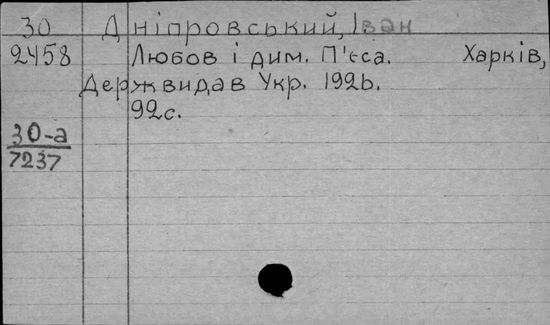 30 Дніпровський, Іван
2458 Любов і дим. П'єса. Харків,
Держвидав Укр. 1926.
92с.
30-а
7237